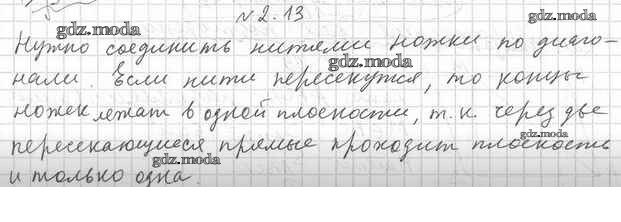 № 2.13
gdz.moda gdz.moda
Нужно соединить нитями ножки по диаго-
gdz.moda gdz.moda
нали. Если нити пересекутся, то концы
ножек лежат в одной плоскости, т.к. через две
gdz.moda gdz.moda
пересекающиеся прямые проходит плоскость
gdz.moda gdz.moda
и только одна.